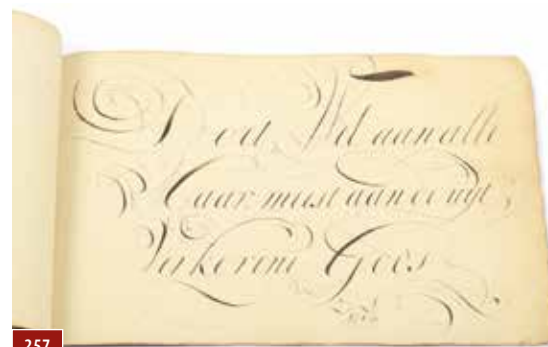 Doet Wel aan alle
Maar meest aan ee uijt
Verkorene Goos
257